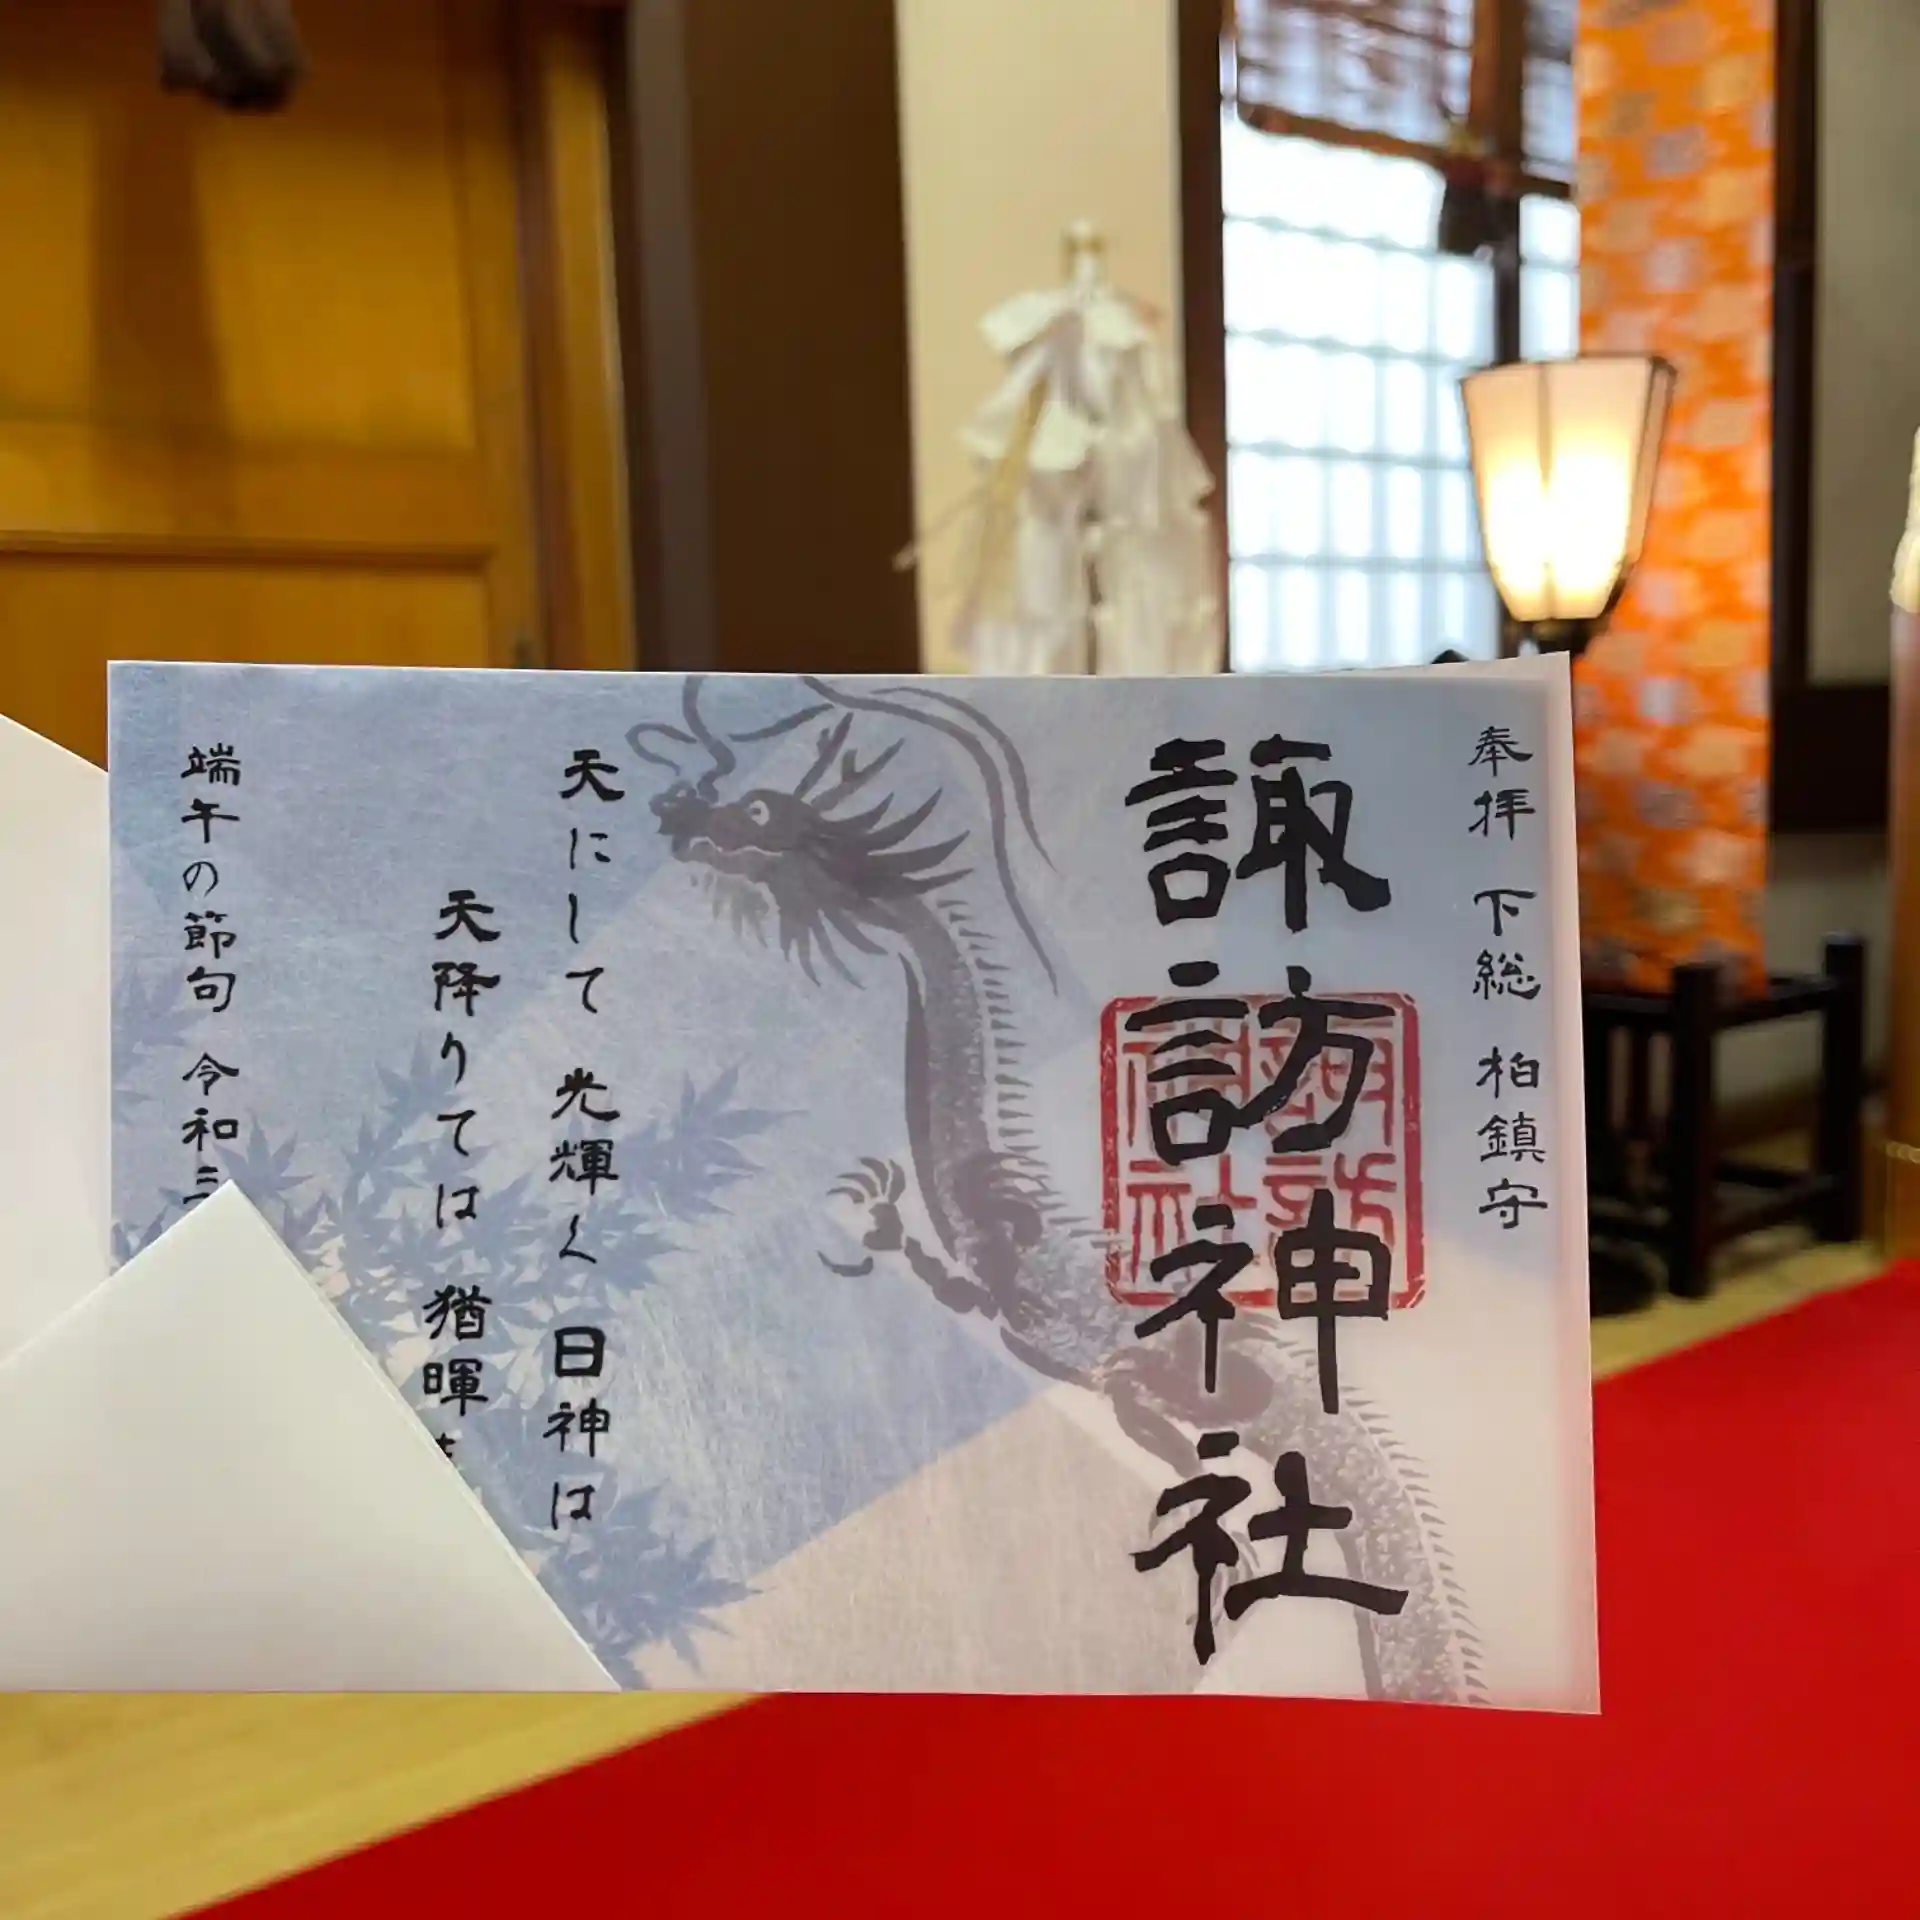 奉拝 下総 柏鎮守
諏訪神社
天にして 光輝く 日神は
天降りては 猶暉
端午の節句 令和三